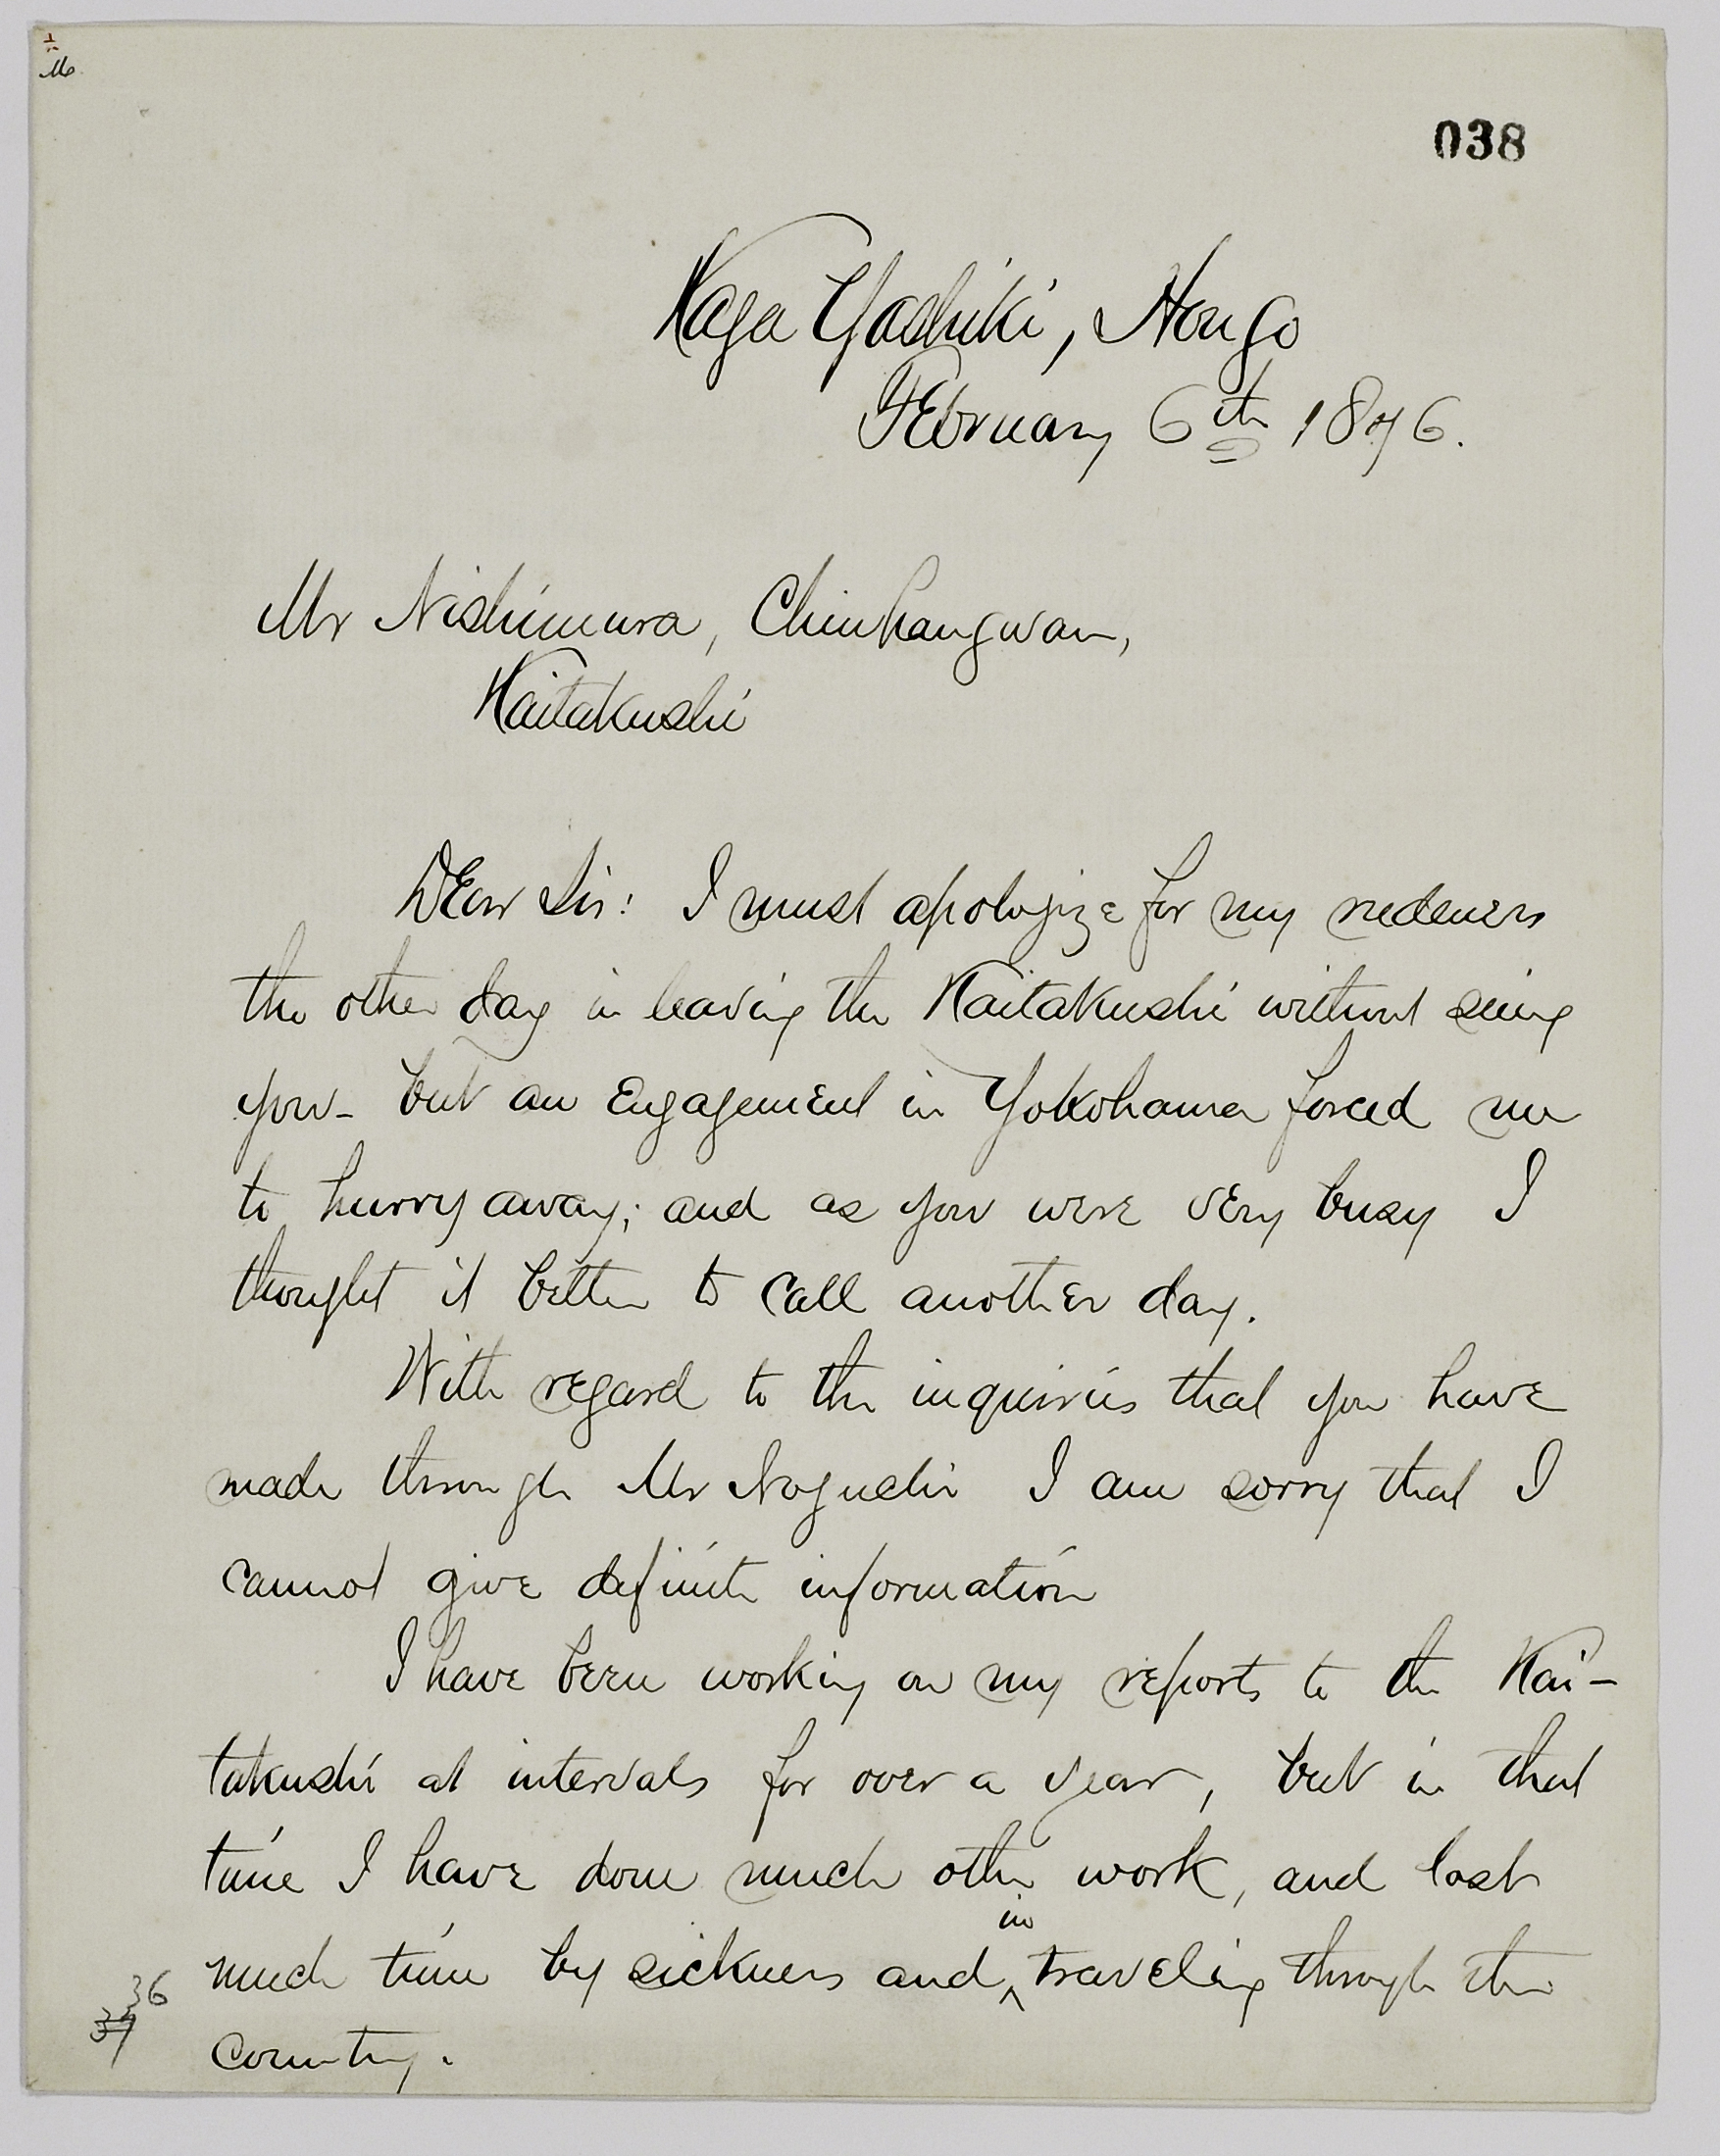 038
Kaga Yashiki, Hongo
February 6th 1876.
Mr Nishimura, Chinhangwan,
Kaitakushi
Dear Sir: I must apologize for my rudeness
the other day in leaving the Kaitakushi without seeing
you - but an engagement in Yokohama forced me
to hurry away; and as you were very busy I
thought it better to call another day.
With regard to the inquiries that you have
made through Mr Noguchi I am sorry that I
cannot give definite information
I have been working on my reports to the Kai-
takushi at intervals for over a year, but in that
time I have done much other work, and lost
in
much time by sickness and ^ traveling through the
36
37
country.